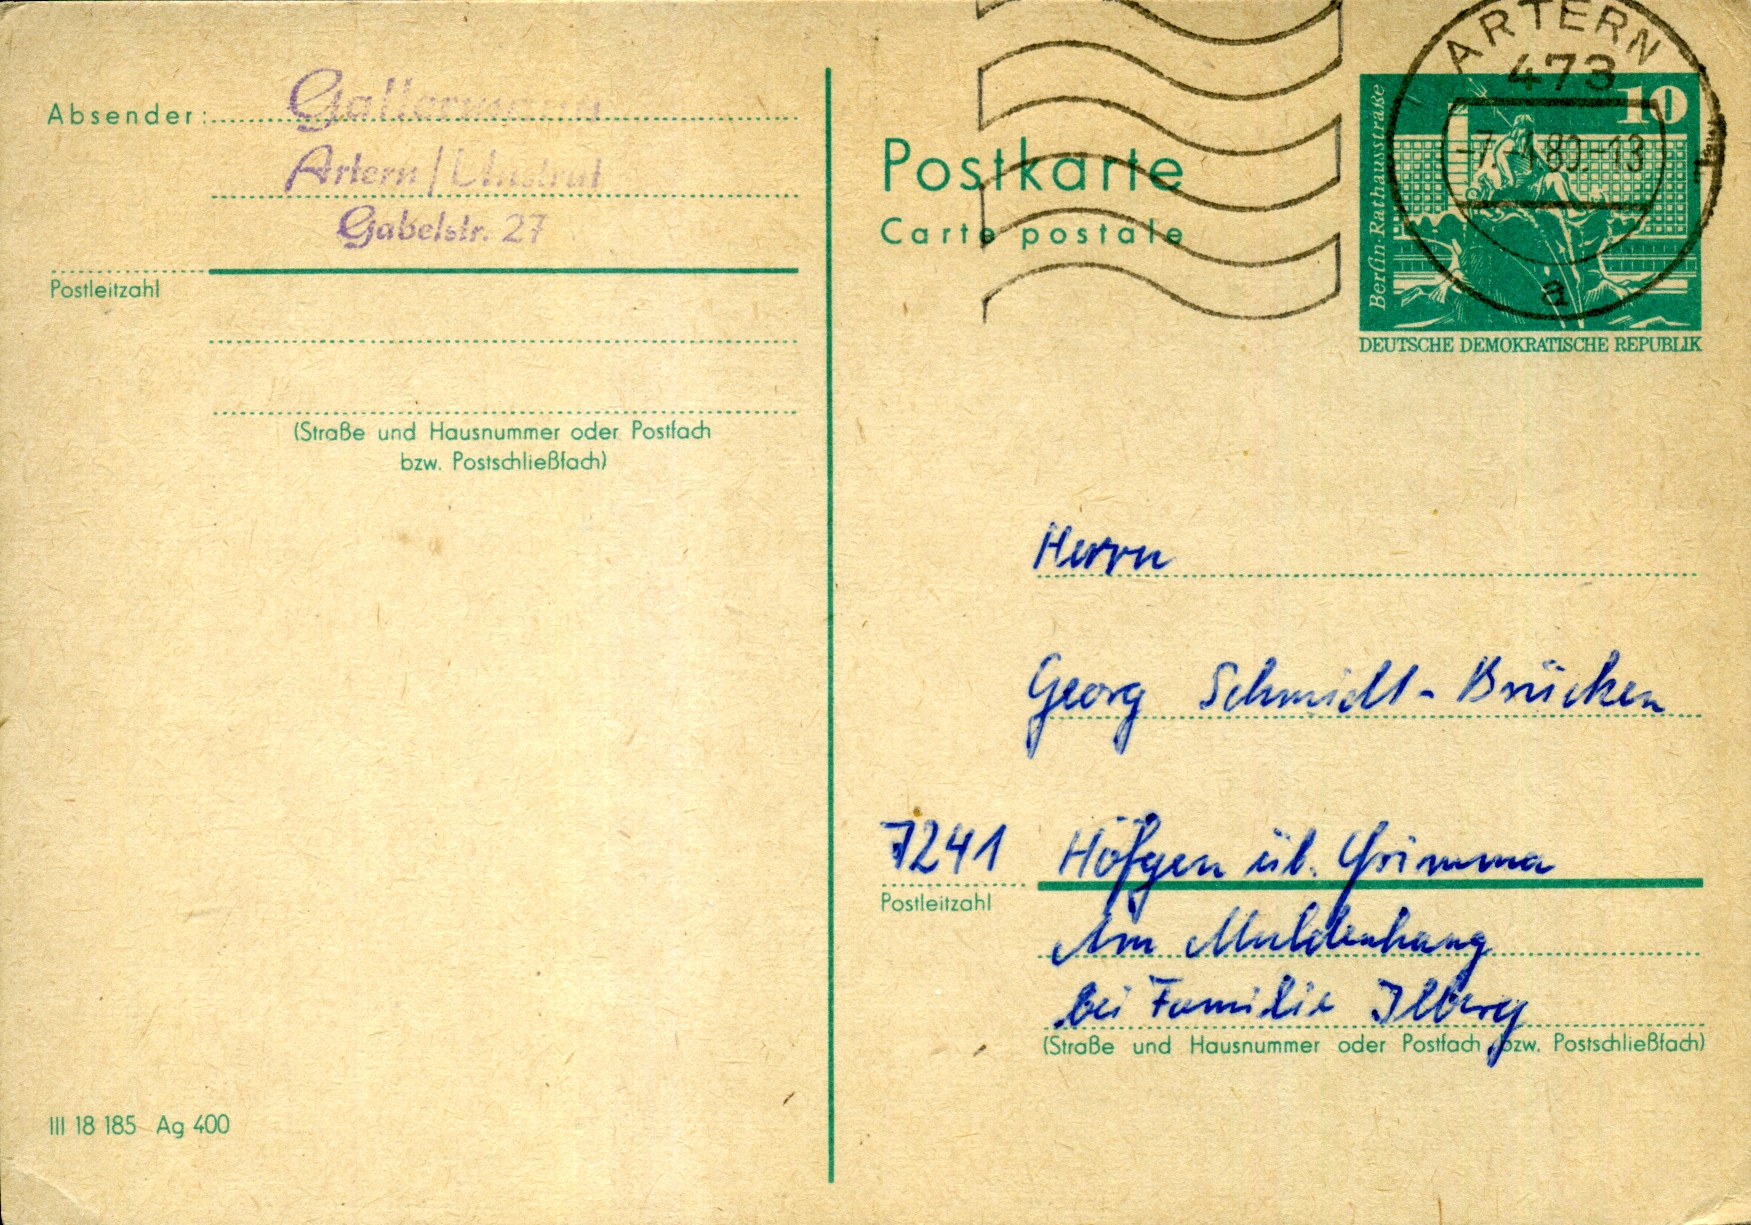 Absender:
Gallermann
Artern/Unstrut
Gabelstr. 27
Postleitzahl
(Straße und Hausnummer oder Postfach
bzw. Postschließfach)
III 18 185 Ag 400
Postkarte
Carte postale
ARTERN
473
-7.-4.80.-13
a
10
Berlin-Rathausstraße
DEUTSCHE DEMOKRATISCHE REPUBLIK
Herrn
Georg Schmidt-Brücken
7241 Höfgen üb. Grimma
Postleitzahl
Am Muldenhang
bei Familie Ilberg
(Straße und Hausnummer oder Postfach bzw. Postschließfach)